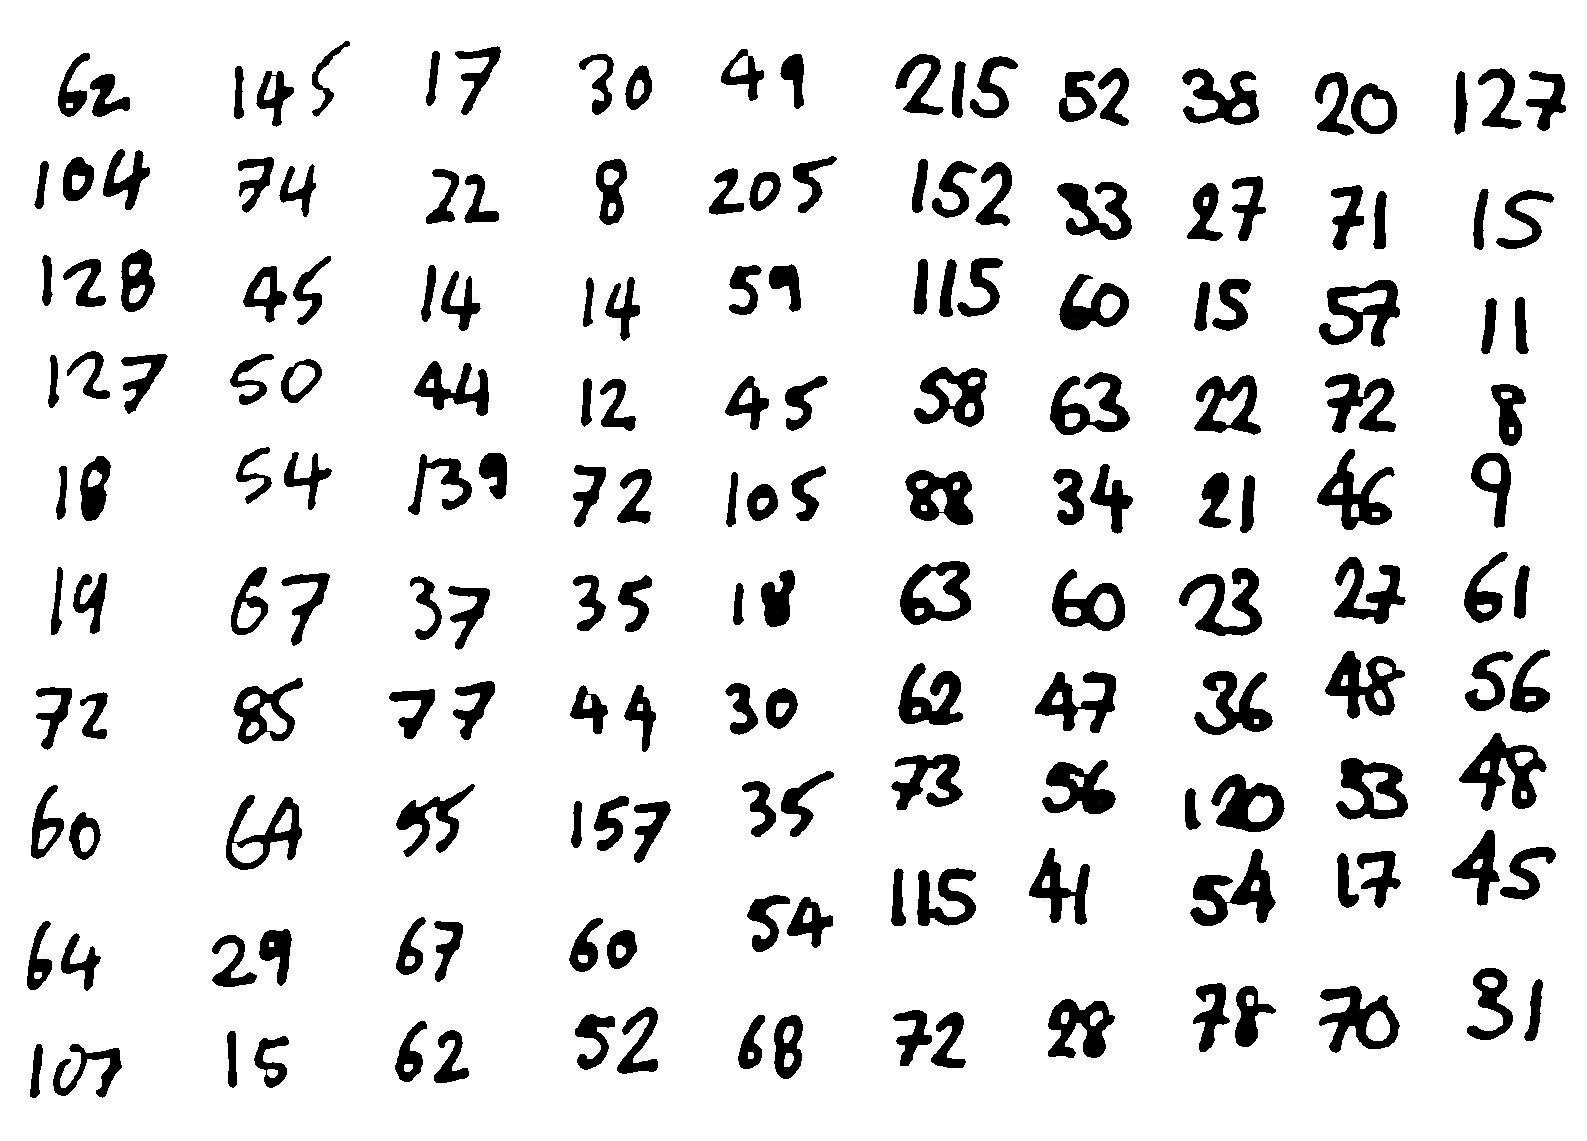 62 145 17 30 49 215 52 38 20 127
104 74 22 8 205 152 33 27 71 15
128 45 14 14 59 115 60 15 57 11
127 50 44 12 45 58 63 22 72 8
18 54 139 72 105 88 34 21 46 9
19 67 37 35 18 63 60 23 27 61
72 85 77 44 30 62 47 36 48 56
60 64 55 157 35 73 56 120 53 48
64 29 67 60 54 115 41 54 17 45
107 15 62 52 68 72 28 78 70 31